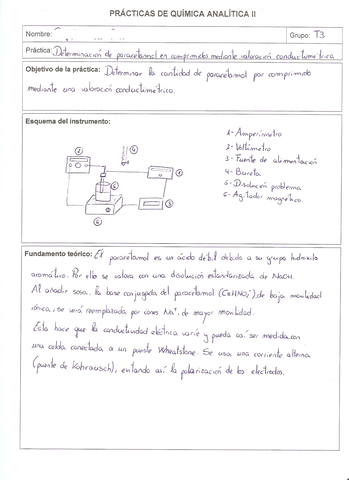 PRÁCTICAS DE QUÍMICA ANALÍTICA II
Nombre:
Grupo: T3
Práctica: Determinación de paracetamol en comprimidos mediante valoración conductimétrica
Objetivo de la práctica: Determinar la cantidad de paracetamol por comprimido
mediante una valoración conductimétrica.
Esquema del instrumento:
1- Amperímetro
2- Voltímetro
3- Fuente de alimentación
4- Bureta
5- Disolución problema
6- Agitador magnético.
2
4
1
5
3
6
Fundamento teórico: El paracetamol es un ácido débil debido a su grupo hidroxilo
aromático. Por ello se valora con una disolución estandarizada de NaOH.
Al añadir sosa, la base conjugada del paracetamol, de baja movilidad
iónica, se verá reemplazada por iones Na⁺, de mayor movilidad.
Esto hace que la conductividad eléctrica varíe y pueda así ser medida con
una celda conectada a un puente Wheatstone. Se usa una corriente alterna
(puente de Kohrausch), evitando así la polarización de los electrodos.